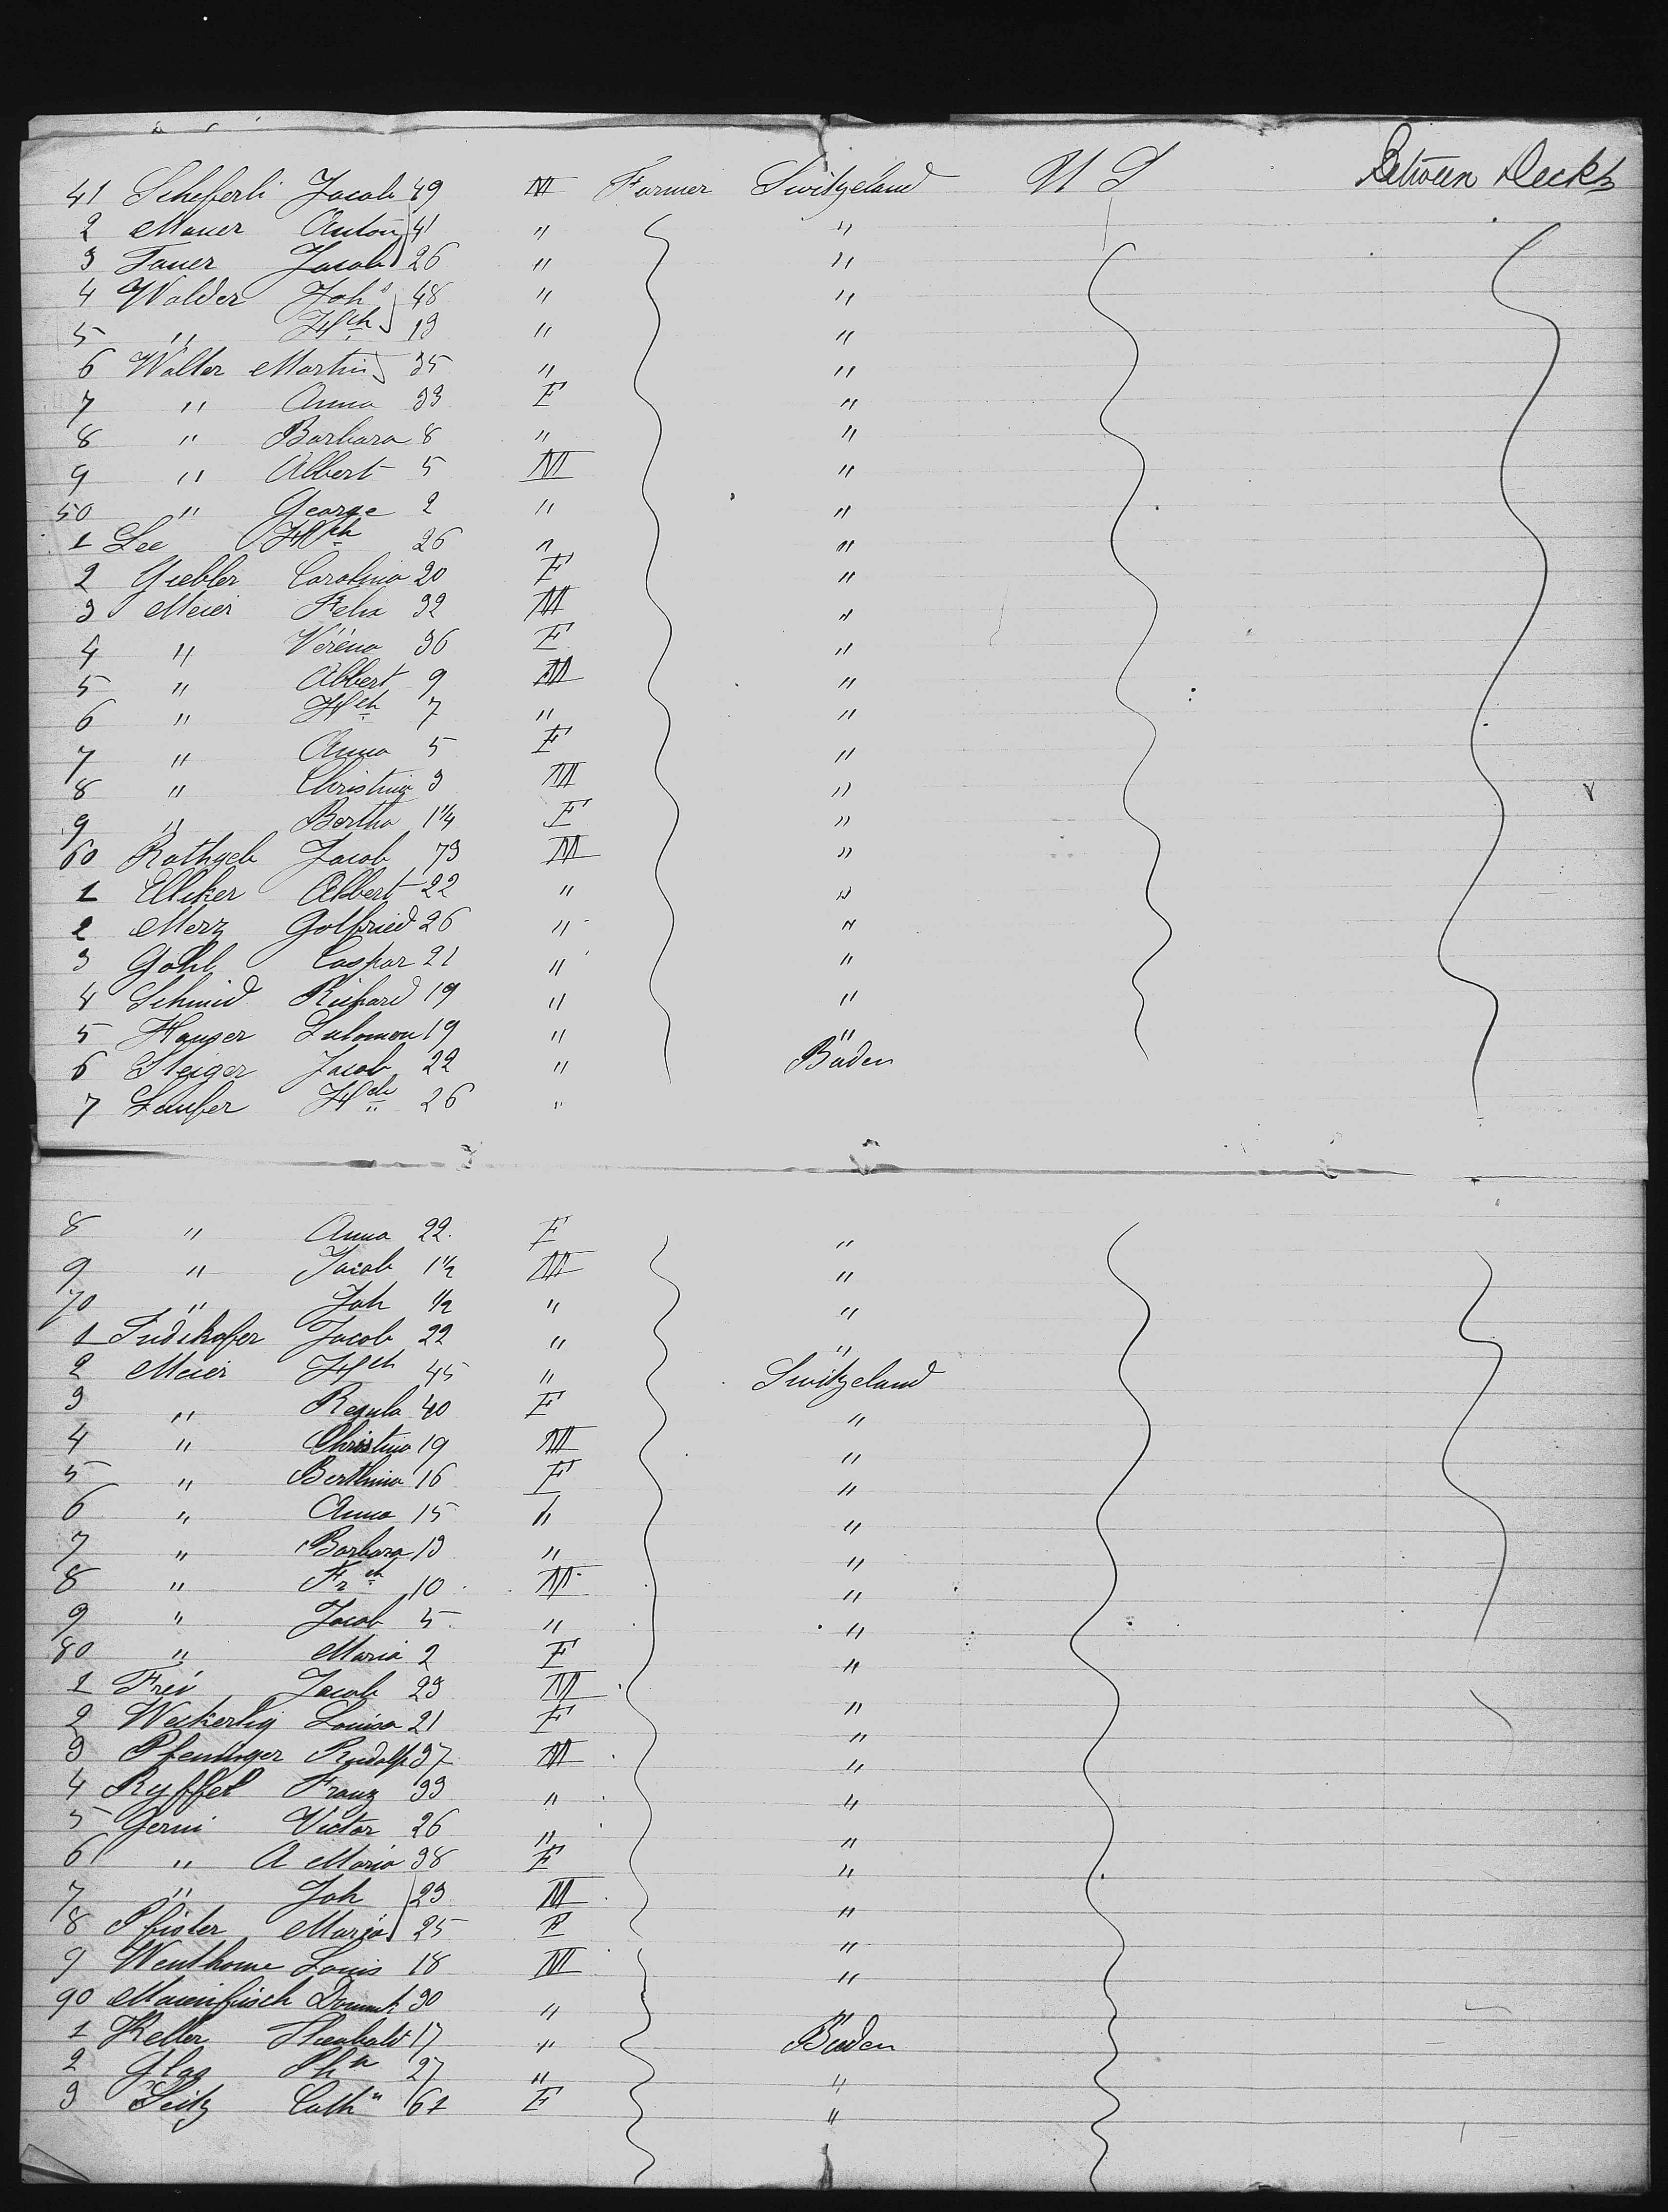 41 Scheferli Jacob 49 M Farmer Switzeland U S Between Decks
2 Maurer Anton 41 " "
3 Faner Jacob 26 " "
4 Walder Joh 48 " "
5 " Hch 19 " "
6 Walter Martin 35 " "
7 " Anna 33 F "
8 " Barbara 8 " "
9 " Albert 5 M "
50 " George 2 " "
1 Lee Hch 26 " "
2 Giebler Carolina 20 F "
3 Meier Felix 32 M "
4 " Verena 36 F "
5 " Albert 9 M "
6 " Hch 7 " "
7 " Anna 5 F "
8 " Christina 3 M "
9 " Bertha 1 1/4 F "
60 Rathgeb Jacob 73 M "
1 Elliker Albert 22 " "
2 Merz Gottfried 26 " "
3 Gohl Caspar 21 " "
4 Schmid Richard 19 " "
5 Hauser Salomon 19 " "
6 Steiger Jacob 22 " Baden
7 Laufer Hch 26 "
8 " Anna 22 F "
9 " Jacob 1 1/2 M "
70 " Joh 1/2 " "
1 Jacob 22 " "
2 Meier Hch 45 " Switzeland
3 " Regula 40 F "
4 " Christina 19 M "
5 " Berthina 16 F "
6 " Anna 15 " "
7 " Barbara 13 " "
8 " Frch 10 M "
9 " Jacob 5 " "
80 " Maria 2 F "
1 Frei Jacob 23 M "
2 Weckerlig Louisa 21 F "
3 Pfenninger Rudolf 37 M "
4 Ryffel Franz 33 " "
5 Gerni Victor 26 " "
6 " A Maria 38 F "
7 " Joh 23 M "
8 Pfister Maria 25 F "
9 Louis 18 M "
90 Maienfisch Dominik 30 " "
1 Keller Theobald 17 " Baden
2 Glas 27 " "
3 Seitz Cath 61 F "